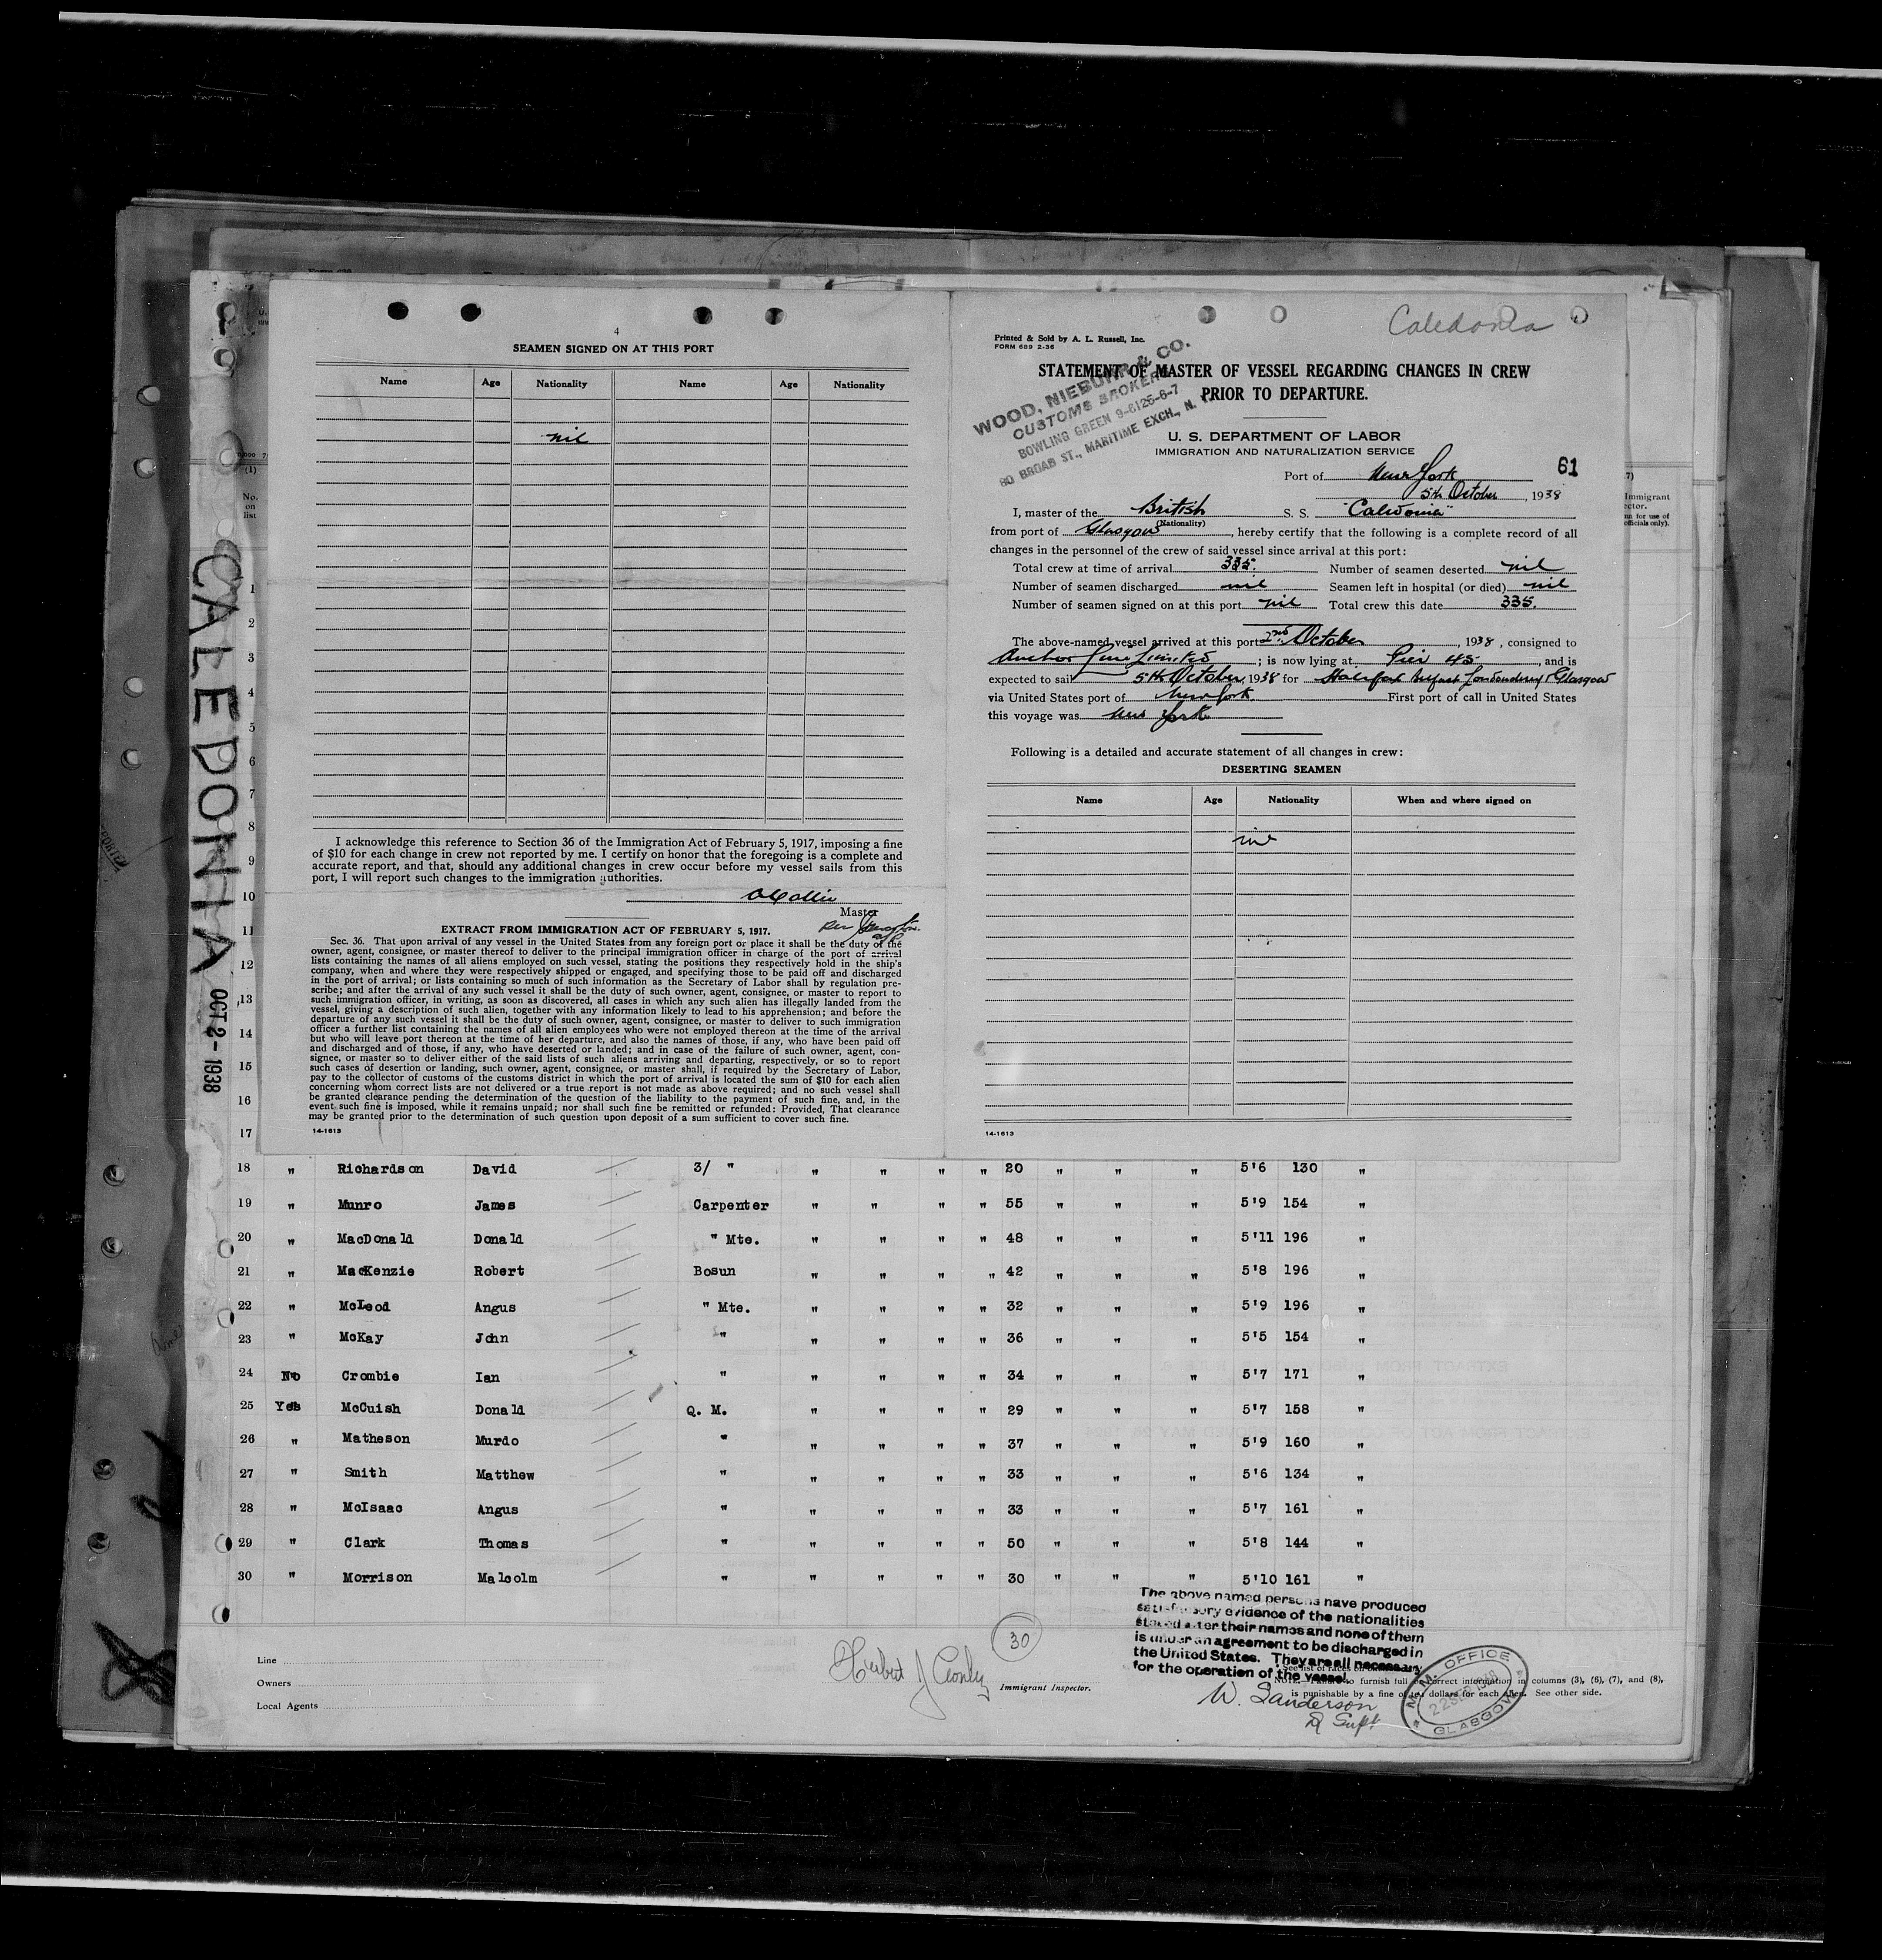 4
SEAMEN SIGNED ON AT THIS PORT
Name Age Nationality Name Age Nationality
nil
I acknowledge this reference to Section 36 of the Immigration Act of February 5, 1917, imposing a fine
of $10 for each change in crew not reported by me. I certify on honor that the foregoing is a complete and
accurate report, and that, should any additional changes in crew occur before my vessel sails from this
port, I will report such changes to the immigration authorities.
Master
EXTRACT FROM IMMIGRATION ACT OF FEBRUARY 5, 1917.
Sec. 36. That upon arrival of any vessel in the United States from any foreign port or place it shall be the duty of the
owner, agent, consignee, or master thereof to deliver to the principal immigration officer in charge of the port of arrival
lists containing the names of all aliens employed on such vessel, stating the positions they respectively hold in the ship's
company, when and where they were respectively shipped or engaged, and specifying those to be paid off and discharged
in the port of arrival; or lists containing so much of such information as the Secretary of Labor shall by regulation pre-
scribe; and after the arrival of any such vessel it shall be the duty of such owner, agent, consignee, or master to report to
such immigration officer, in writing, as soon as discovered, all cases in which any such alien has illegally landed from the
vessel, giving a description of such alien, together with any information likely to lead to his apprehension; and before the
departure of any such vessel it shall be the duty of such owner, agent, consignee, or master to deliver to such immigration
officer a further list containing the names of all alien employees who were not employed thereon at the time of the arrival
but who will leave port thereon at the time of her departure, and also the names of those, if any, who have been paid off
and discharged and of those, if any, who have deserted or landed; and in case of the failure of such owner, agent, con-
signee, or master so to deliver either of the said lists of such aliens arriving and departing, respectively, or so to report
such cases of desertion or landing, such owner, agent, consignee, or master shall, if required by the Secretary of Labor,
pay to the collector of customs of the customs district in which the port of arrival is located the sum of $10 for each alien
concerning whom correct lists are not delivered or a true report is not made as above required; and no such vessel shall
be granted clearance pending the determination of the question of the liability to the payment of such fine, and, in the
event such fine is imposed, while it remains unpaid; nor shall such fine be remitted or refunded: Provided, That clearance
may be granted prior to the determination of such question upon deposit of a sum sufficient to cover such fine.
14-1613
Caledonia
Printed & Sold by A. L. Russell, Inc.
FORM 689 2-36
STATEMENT OF MASTER OF VESSEL REGARDING CHANGES IN CREW
PRIOR TO DEPARTURE.
WOOD, NIEBUHR & CO.
CUSTOMS BROKERS
BOWLING GREEN 9-6125-6-7
80 BROAD ST., MARITIME EXCH., N. Y.
U. S. DEPARTMENT OF LABOR
IMMIGRATION AND NATURALIZATION SERVICE
61
Port of New York
5th October, 1938
I, master of the British S. S. "Caledonia"
(Nationality)
from port of Glasgow, hereby certify that the following is a complete record of all
changes in the personnel of the crew of said vessel since arrival at this port:
Total crew at time of arrival 335. Number of seamen deserted nil
Number of seamen discharged nil Seamen left in hospital (or died) nil
Number of seamen signed on at this port nil Total crew this date 335.
The above-named vessel arrived at this port 2nd October, 1938, consigned to
Anchor Line Limited; is now lying at Pier 45, and is
expected to sail 5th October, 1938 for Halifax Belfast Londonderry & Glasgow
via United States port of New York. First port of call in United States
this voyage was New York
Following is a detailed and accurate statement of all changes in crew:
DESERTING SEAMEN
Name Age Nationality When and where signed on
nil
14-1613
CALEDONIA
OCT 2 - 1938
(1)
No.
on
list
1
2
3
4
5
6
7
8
9
10
11
12
13
14
15
16
17
18 " Richardson David 3/ " " " " " 20 " " " 5'6 130 "
19 " Munro James Carpenter " " " " 55 " " " 5'9 154 "
20 " MacDonald Donald " Mte. " " " " 48 " " " 5'11 196 "
21 " MacKenzie Robert Bosun " " " " 42 " " " 5'8 196 "
22 " McLeod Angus " Mte. " " " " 32 " " " 5'9 196 "
23 " McKay John " " " " " 36 " " " 5'5 154 "
24 No Crombie Ian " " " " " 34 " " " 5'7 171 "
25 Yes McCuish Donald Q. M. " " " " 29 " " " 5'7 158 "
26 " Matheson Murdo " " " " " 37 " " " 5'9 160 "
27 " Smith Matthew " " " " " 33 " " " 5'6 134 "
28 " McIsaac Angus " " " " " 33 " " " 5'7 161 "
29 " Clark Thomas " " " " " 50 " " " 5'8 144 "
30 " Morrison Malcolm " " " " " 30 " " " 5'10 161 "
The above named persons have produced
satisfactory evidence of the nationalities
stated after their names and none of them
is under an agreement to be discharged in
the United States. They are all necessary
for the operation of the vessel.
W. Sanderson
D Supt
30
Line
Owners
Local Agents
Herbert J
Immigrant Inspector.
to furnish full or correct information in columns (3), (6), (7), and (8),
is punishable by a fine of ten dollars for each alien. See other side.
M. M. OFFICE
GLASGOW